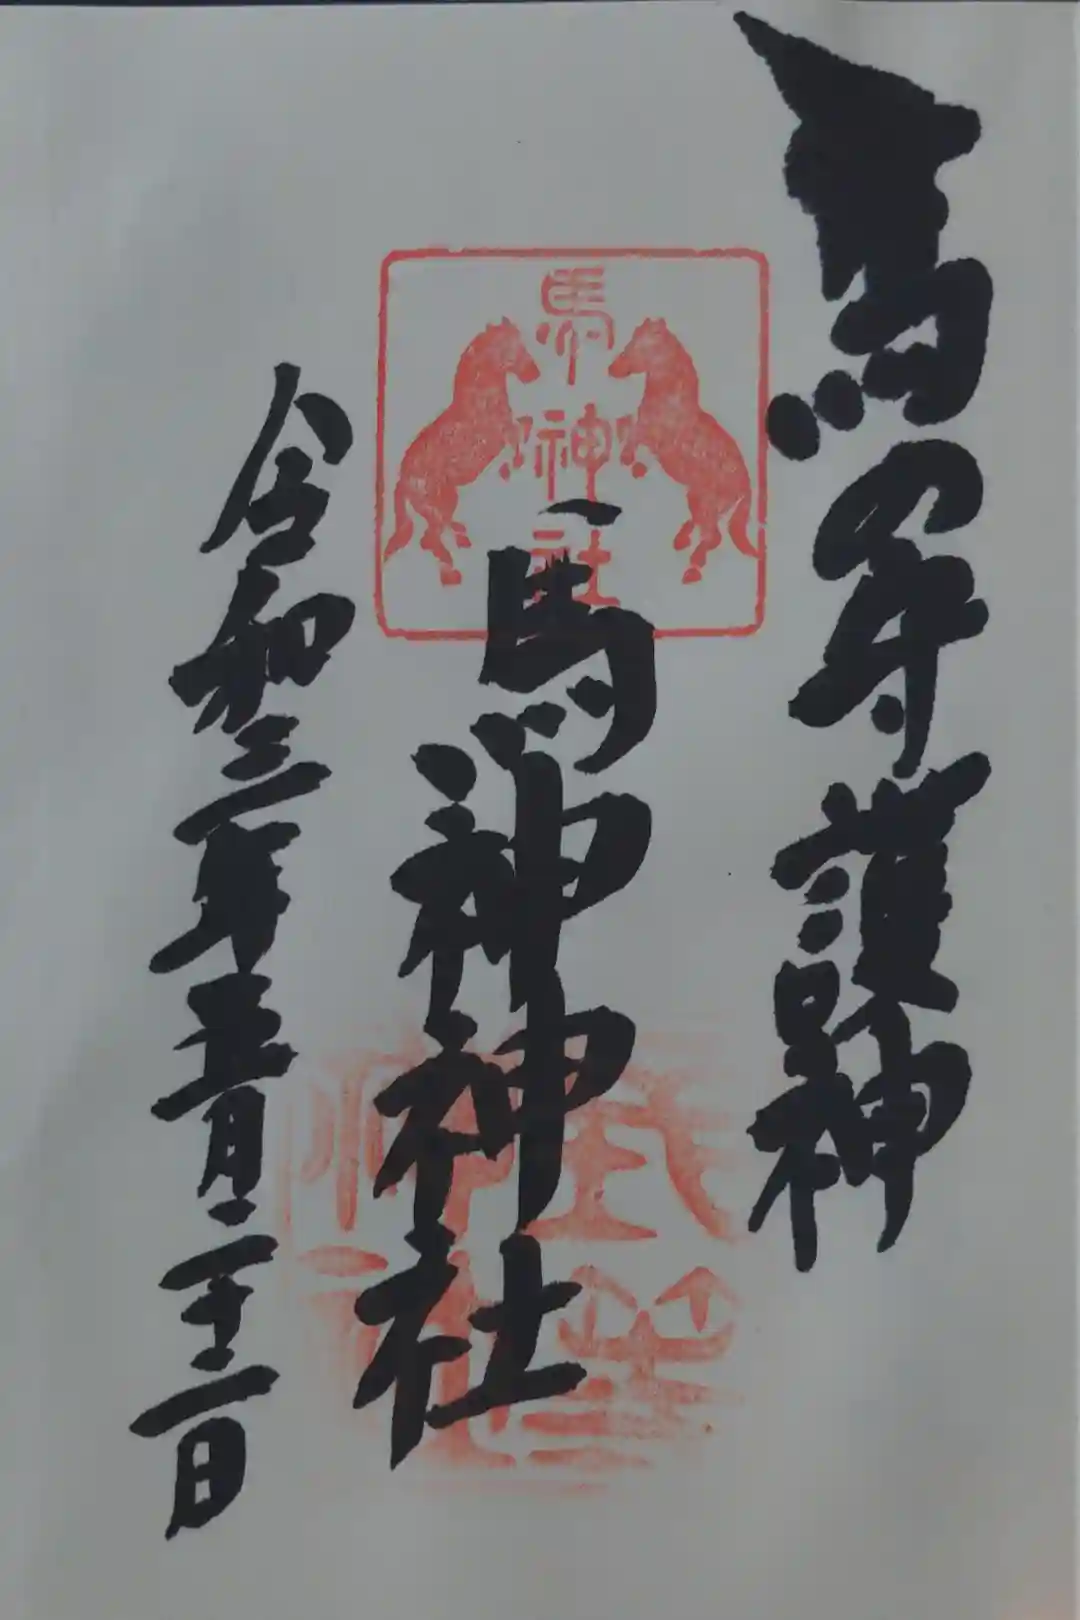 馬守護神
馬神社
馬神神社
令和三年五月二十二日